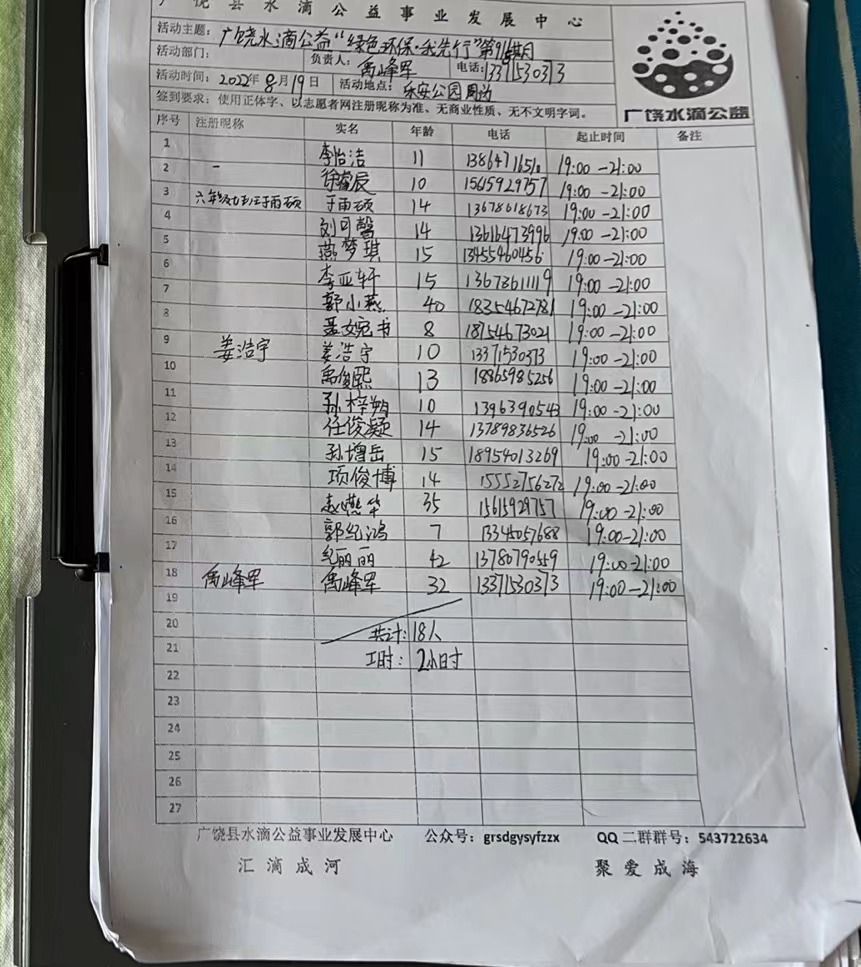 广饶县水滴公益事业发展中心
活动主题：广饶水滴公益“绿色环保·我先行”第916期
活动部门： 负责人：禹峰军 电话：13371530373
活动时间：2022年8月19日 活动地点：乐安公园周边
签到要求：使用正体字、以志愿者网注册昵称为准、无商业性质、无不文明字词。
广饶水滴公益
序号 注册昵称 实名 年龄 电话 起止时间 备注
1 李怡洁 11 13864716510 19:00-21:00
2 徐睿辰 10 15615929757 19:00-21:00
3 于雨硕 14 13678618673 19:00-21:00
4 刘可馨 14 13616473996 19:00-21:00
5 燕梦琪 15 13455960456 19:00-21:00
6 李亚轩 15 13673611119 19:00-21:00
7 郭小燕 40 18354672781 19:00-21:00
8 聂婉书 8 18754673021 19:00-21:00
9 姜浩宇 姜浩宇 10 13371530373 19:00-21:00
10 禹俊熙 13 18865985256 19:00-21:00
11 孙梓 10 1396390543 19:00-21:00
12 任俊凝 14 13789836526 19:00-21:00
13 孙增岳 15 18954013269 19:00-21:00
14 项俊博 14 15552756272 19:00-21:00
15 赵燕华 35 15615929757 19:00-21:00
16 郭纪鸿 7 13345057688 19:00-21:00
17 纪丽丽 42 13780790559 19:00-21:00
18 禹峰军 禹峰军 32 13371530373 19:00-21:00
19
20 共计：18人
21 工时：2小时
22
23
24
25
26
27
广饶县水滴公益事业发展中心 公众号：grsdgysyfzzx QQ二群群号：543722634
汇滴成河 聚爱成海